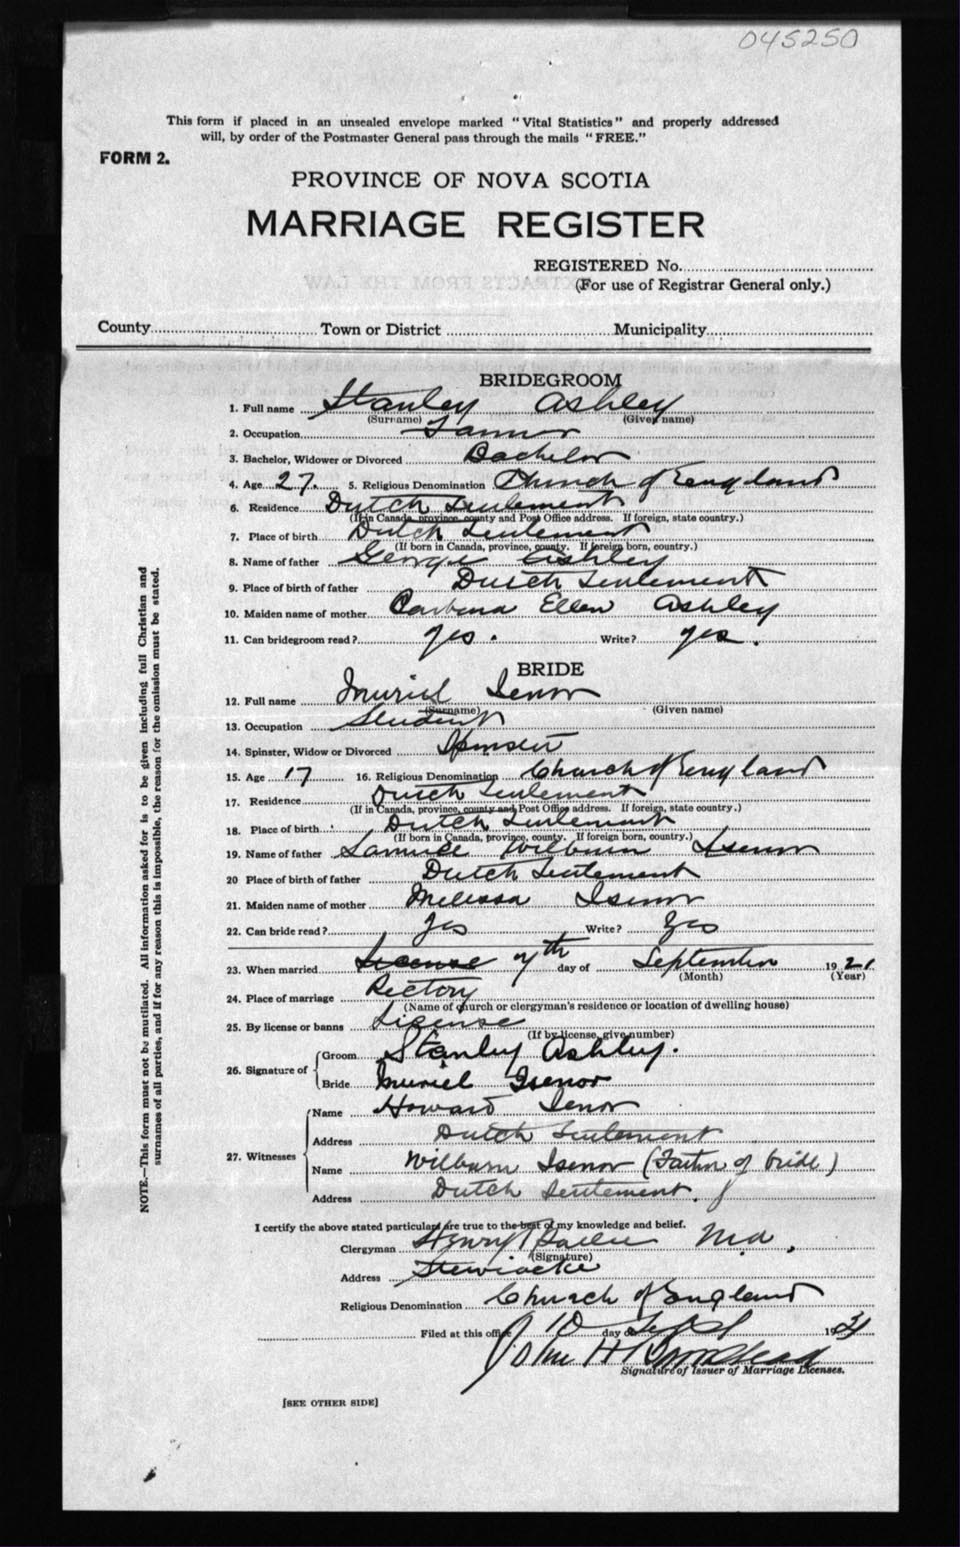 045250
This form if placed in an unsealed envelope marked "Vital Statistics" and properly addressed
will, by order of the Postmaster General pass through the mails "FREE."
FORM 2.
PROVINCE OF NOVA SCOTIA
MARRIAGE REGISTER
REGISTERED No.
(For use of Registrar General only.)
EXTRACTS FROM THE LAW
County Town or District Municipality
BRIDEGROOM
1. Full name Stanley Ashley
(Surname) (Given name)
2. Occupation
3. Bachelor, Widower or Divorced Bachelor
4. Age 27 5. Religious Denomination Church of England
6. Residence Dutch Setlement
(If in Canada, province, county and Post Office address. If foreign, state country.)
7. Place of birth Dutch Setlement
(If born in Canada, province, county. If foreign born, country.)
8. Name of father George Ashley
9. Place of birth of father Dutch Setlement
10. Maiden name of mother Ellen Ashley
11. Can bridegroom read? yes. Write? yes.
BRIDE
12. Full name Muriel Isenor
(Surname) (Given name)
13. Occupation Student
14. Spinster, Widow or Divorced Spinster
15. Age 17 16. Religious Denomination Church of England
17. Residence Dutch Setlement
(If in Canada, province, county and Post Office address. If foreign, state country.)
18. Place of birth Dutch Setlement
(If born in Canada, province, county. If foreign born, country.)
19. Name of father Samuel Wilburn Isenor
20 Place of birth of father Dutch Setlement
21. Maiden name of mother Melissa Isenor
22. Can bride read? Yes Write? Yes
23. When married License 7th day of September 19
(Month) (Year)
24. Place of marriage Rectory
(Name of church or clergyman's residence or location of dwelling house)
25. By license or banns License
(If by license, give number)
26. Signature of Groom Stanley Ashley.
Bride Muriel Isenor
27. Witnesses Name Howard Isenor
Address Dutch Setlement
Name Wilburn Isenor (Father of bride)
Address Dutch Setlement.
I certify the above stated particulars are true to the best of my knowledge and belief.
Clergyman Henry
(Signature)
Address Stewiacke
Religious Denomination Church of England
Filed at this office 10 day of Sept 1931
John H
Signature of Issuer of Marriage Licenses.
[SEE OTHER SIDE]
NOTE.—This form must not be mutilated. All information asked for is to be given including full Christian and
surnames of all parties, and if for any reason this is impossible, the reason for the omission must be stated.